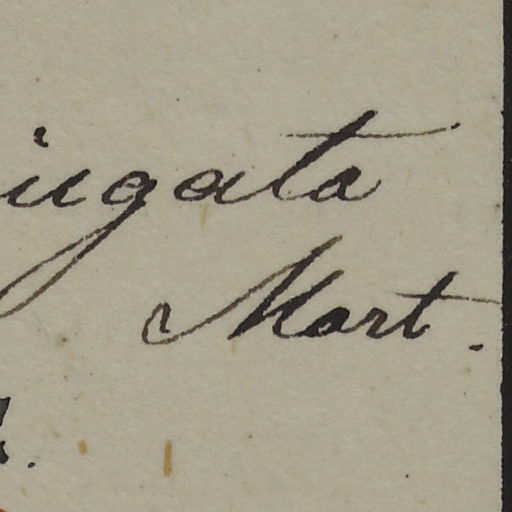 iugata
Mart.